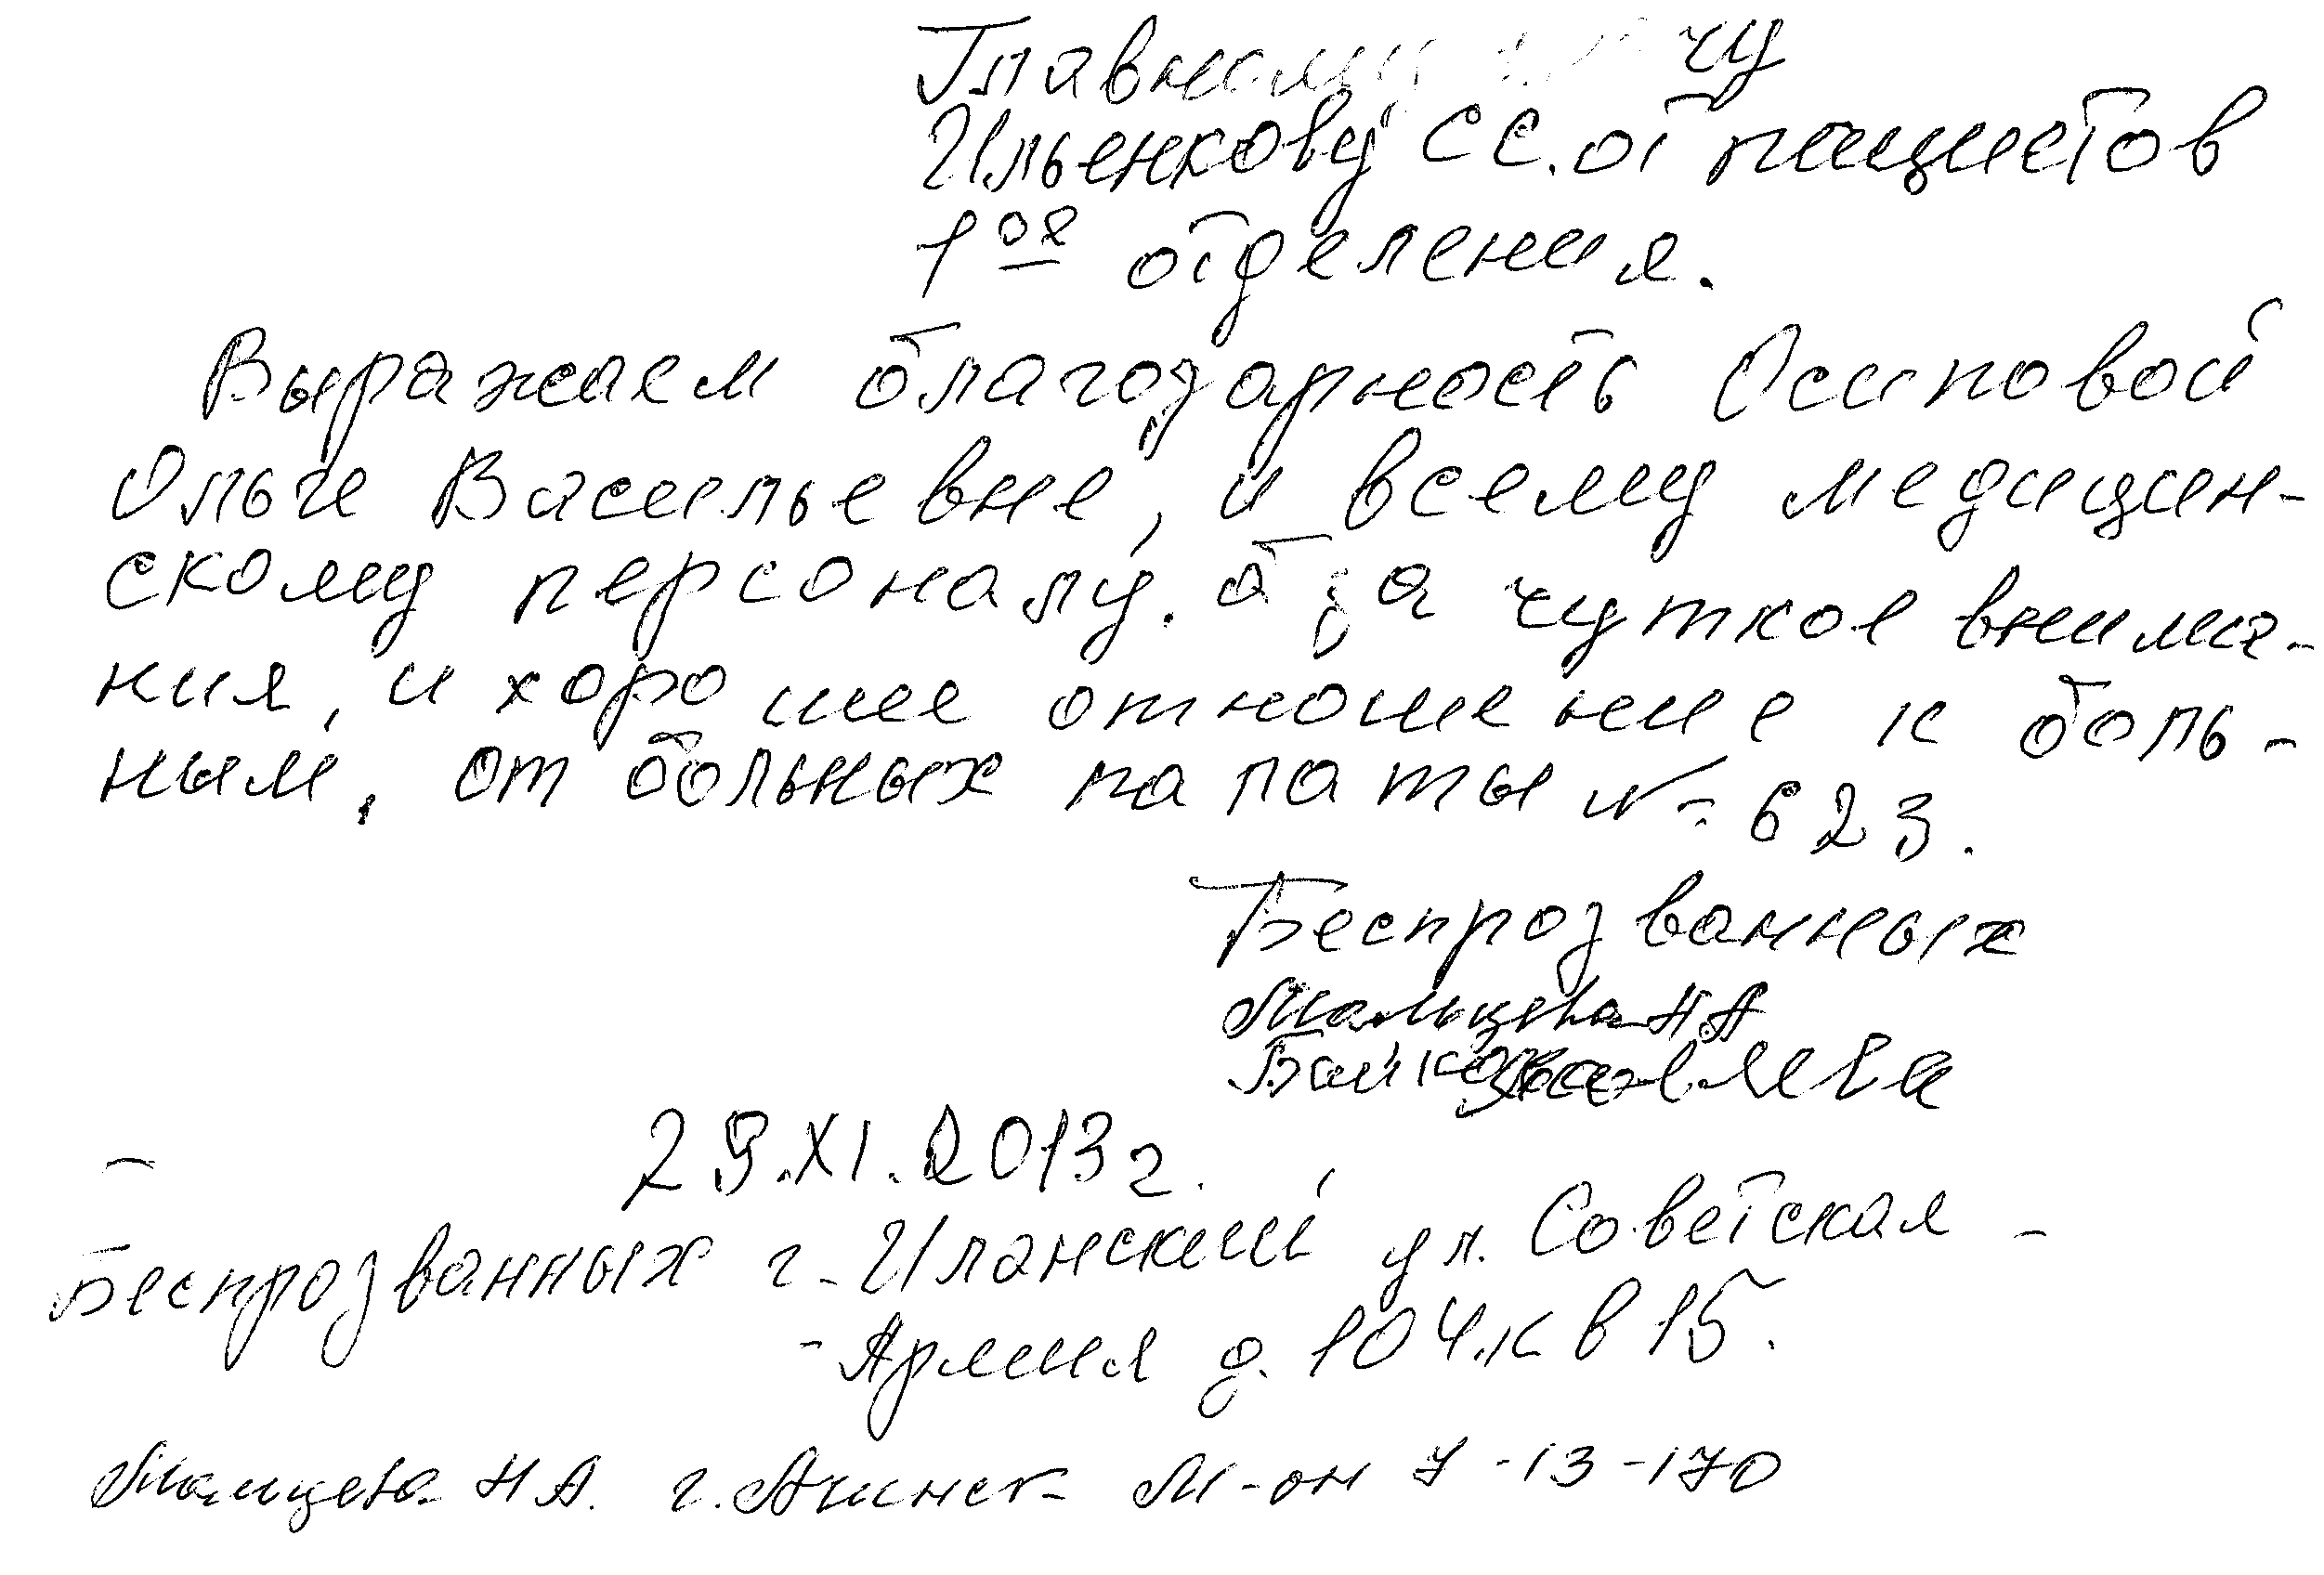 Главному
Ильенкову СС. от пациетов
1ое отделения.
Выражаем благодарность Осиповой
Ольге Васильевне, и всему медицин-
скому персоналу. за чуткое внима-
ния, и хорошее отношение к боль-
ным, от больных палаты № 623.
Беспрозванных
Мальцева Н А
Байкова
29.XI.2013г.
Беспрозванных г. Иланский ул. Советская -
- Армия д. 104. кв 15.
Мальцева Н А. г. Ачинск М-он 7-13-170